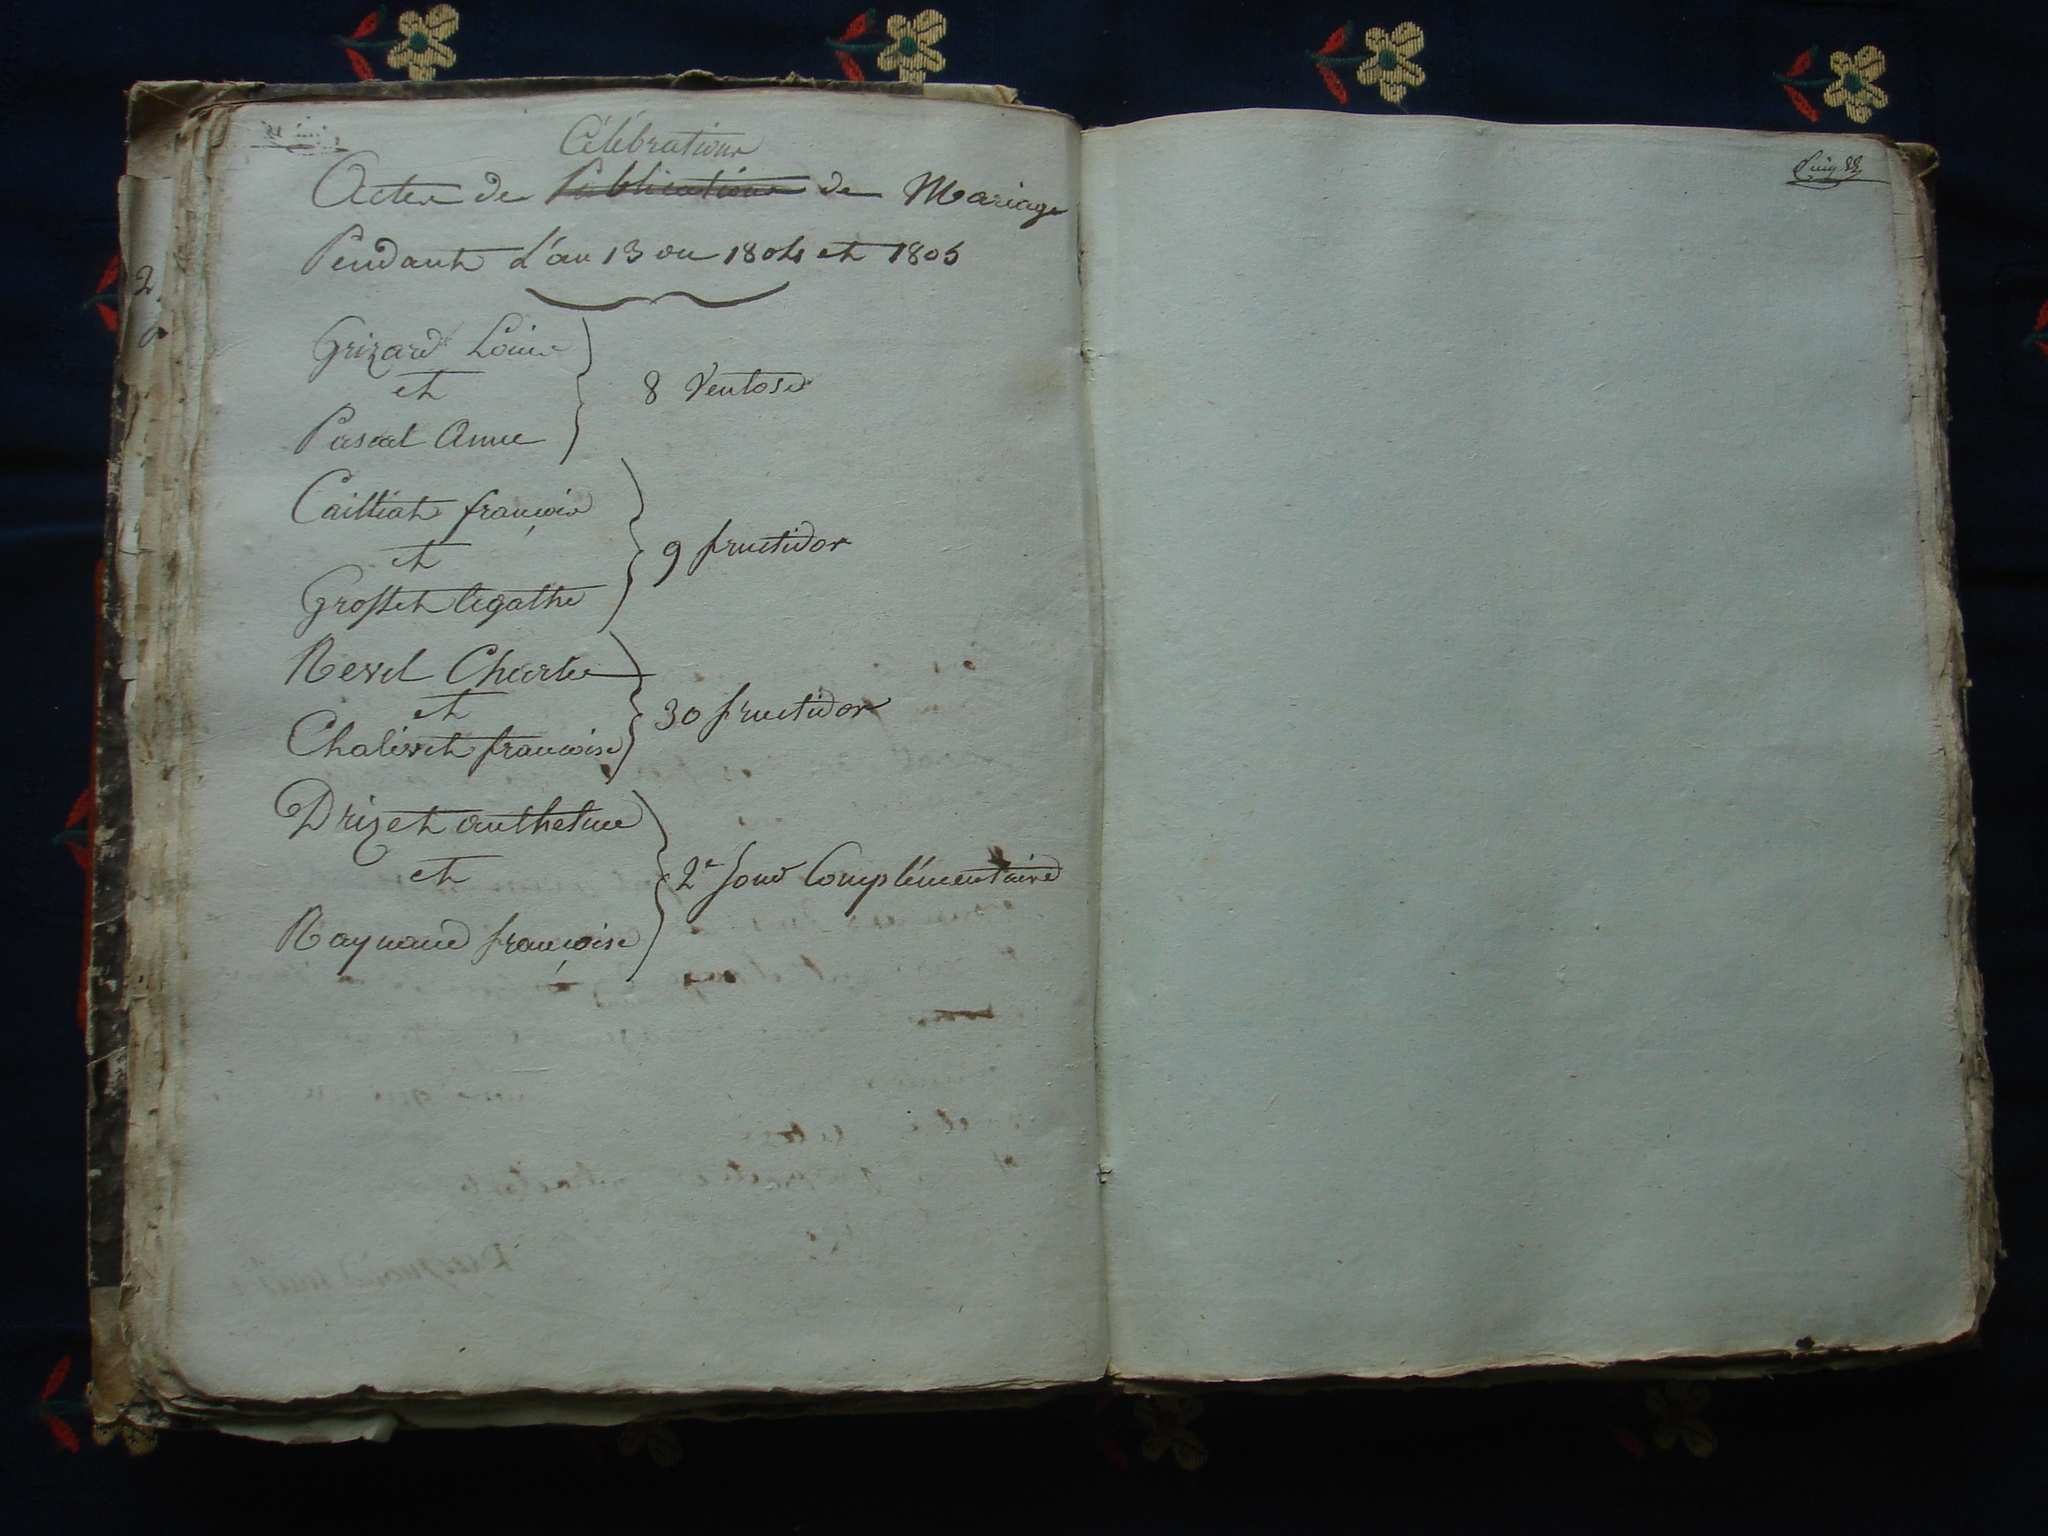 Célébrations
Actes de Publications de Mariage
Pendant l'an 13 ou 1804 et 1805
Grizard Louis
et
Pascal Anne
8 Ventose
Cailliat françois
et
Grosset Agathe
9 fructidor
Revel Charles
et
Chalivet françoise
30 fructidor
Drizet anthelme
et
Raynaud françoise
2e Jour Complémentaire
2